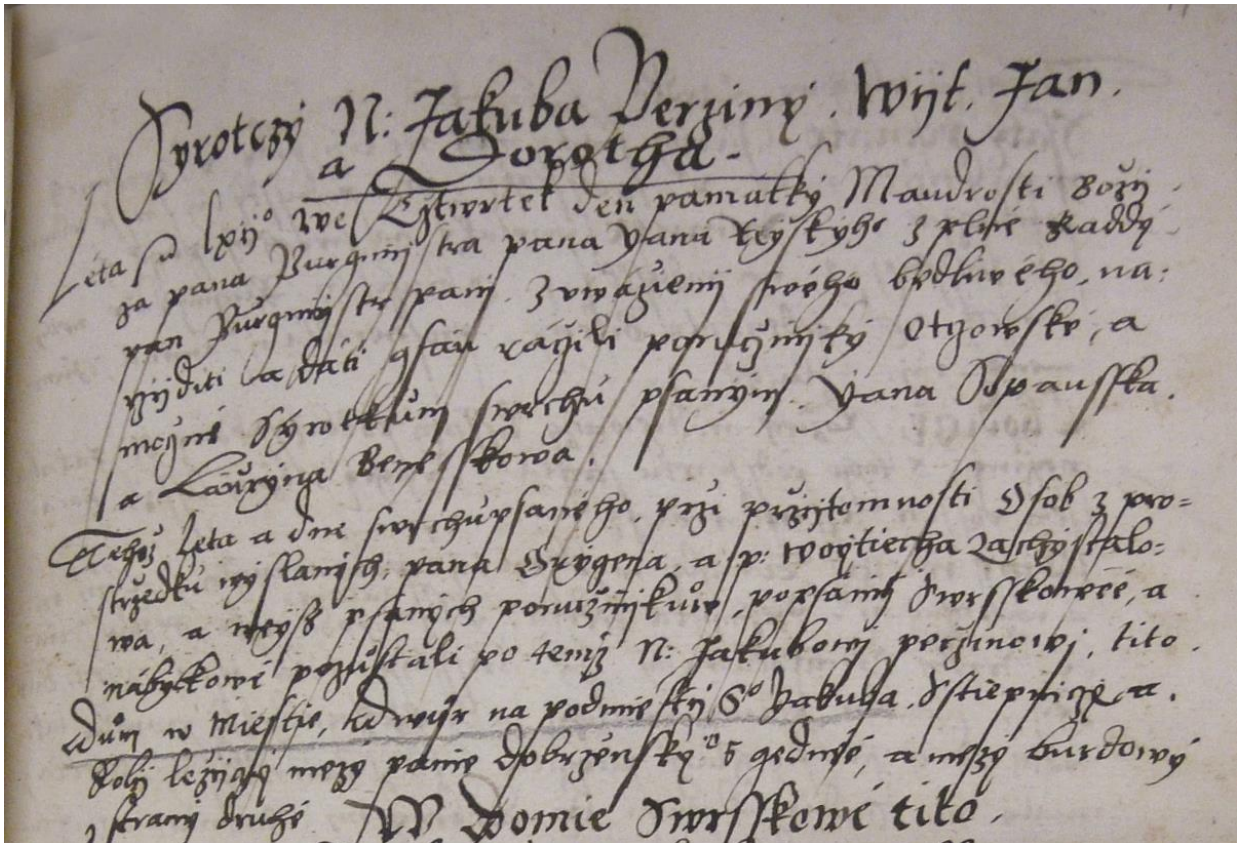 Syrotczy N: Jakuba Perziny. Wijt. Jan.
a Dorotha.
Leta lxijo we Cztwrtek den pamatky Maudrosti Bozij
za pana Purgmistra pana Yana z plné Raddy
pan Purgmistr panij. z uwazenij swého bedliwého, na:
rzijditi a dáti gsau rácżili porucżnijky Otczowské, a
mocżné Syrotkum swrchu psanym. Yana Sspausska.
a Laurijna Benesskowa.
Tehoż Leta a dne swrchupsaného, przi przijtomnosti Osob z pro=
strzedku wyslanych, pana Grygena, a p: Woytiecha Zachystalo:
wa, a weyss psanych porucżnijkuow, popsanij Swrsskowéé, a
nábytkowé pozustali po temż N: Jakubowi perżinowi, tito.
Duom w Miestie, Dwuor na podmestij So Jakuba, Sstiepnicze a.
Rolij leżijczy mezy panie Dobrzensky o s gedné, a mezy burdowy
z strany druhé W Domie Swrsskowé tito.